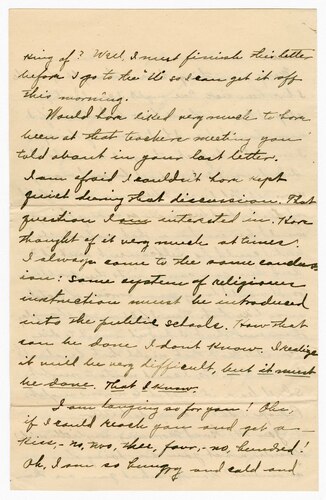 King of? Well, I must finish this letter
before I go to the "U" so I can get it off
this morning.
Would have liked very much to have
been at that teachers meeting you
told about in your last letter.
I am afraid I couldn't have kept
quiet during that discussion. That
question I am interested in. Have
thought of it very much at times.
I always come to the same conclus-
ion: some system of religious
instruction must be introduced
into the public schools. How that
can be done I dont know. I realize
it will be very difficult, but it must
be done. That I know.
I am longing so for you! Oh,
if I could reach you and get a
kiss, - no, two, three, four, - no, hundred!
Oh, I am so hungry and cold and